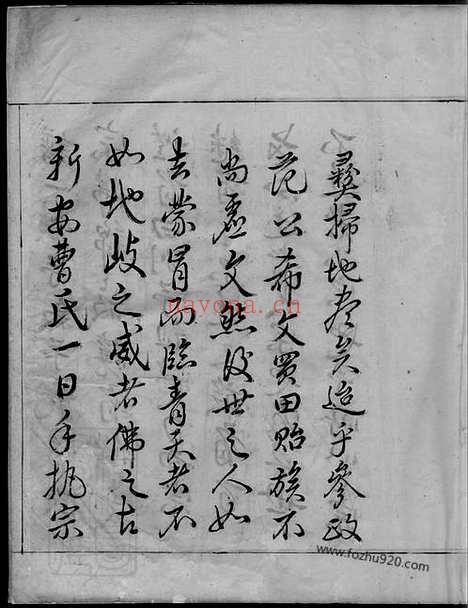 彝掃地盡矣迨乎參政
范公希文買田贍族不
尚虛文然後世之人如
去蒙冒而臨青天者不
如地岐之威者佛之古
新安曹氏一日手執宗
nayona.cn
www.fozhu920.com